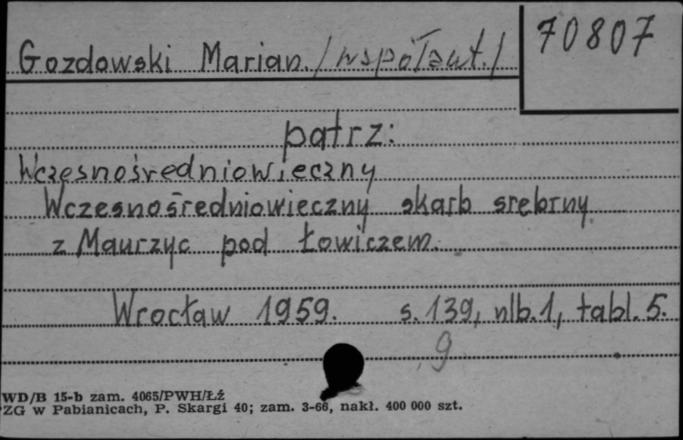 70807
Gozdowski Marian. /współaut./
patrz:
Wczesnośredniowieczny
Wczesnośredniowieczny skarb srebrny
z Maurzyc pod Łowiczem.
Wrocław 1959. s. 139, nlb. 1, tabl. 5.
9
WD/B 15-b zam. 4065/PWH/ŁŹ
ZG w Pabianicach, P. Skargi 40; zam. 3-66, nakł. 400 000 szt.